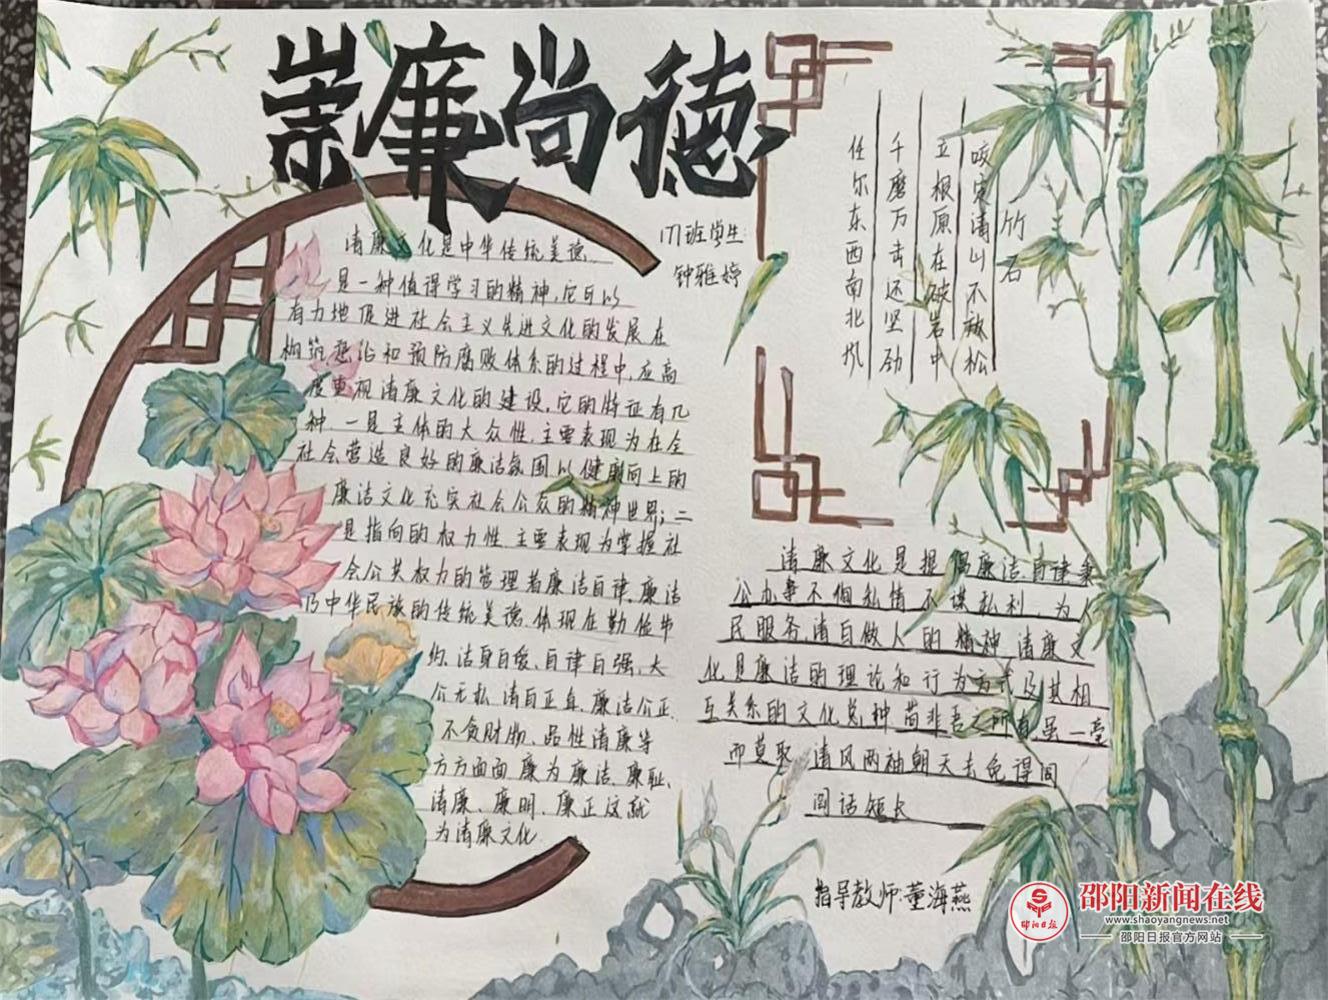 崇廉尚德
171班学生:
钟雅婷
清廉文化是中华传统美德
是一种值得学习的精神,它可以
有力地促进社会主义先进文化的发展在
惩治和预防腐败体系的过程中,应高
度重视清廉文化的建设,它的特征有几
种,一是主体的大众性,主要表现为在全
社会营造良好的廉洁氛围以健康向上的
廉洁文化充实社会公众的精神世界;二
是指向的权力性,主要表现为掌握社
会公共权力的管理者廉洁自律,廉洁
乃中华民族的传统美德,体现在勤俭节
约,洁身自爱,自律自强,大
公无私,清自正身,廉洁公正,
不贪财物、品性清廉等
方方面面廉为廉洁、廉耻、
清廉、廉明、廉正这就
为清廉文化.
竹石
咬定清山不放松
立根原在破岩中
千磨万击还坚劲
任尔东西南北风
清廉文化是提倡廉洁自律秉
公办事不徇私情不谋私利,为人
民服务,清白做人的精神,清廉文
化是廉洁的理论和行为方式及其相
互关系的文化总种苟非吾之所有虽一毫
而莫取,清风两袖朝天去免得闾
阎话短长
指导教师:董海燕
邵阳日报
邵阳新闻在线
www.shaoyangnews.net
邵阳日报官方网站